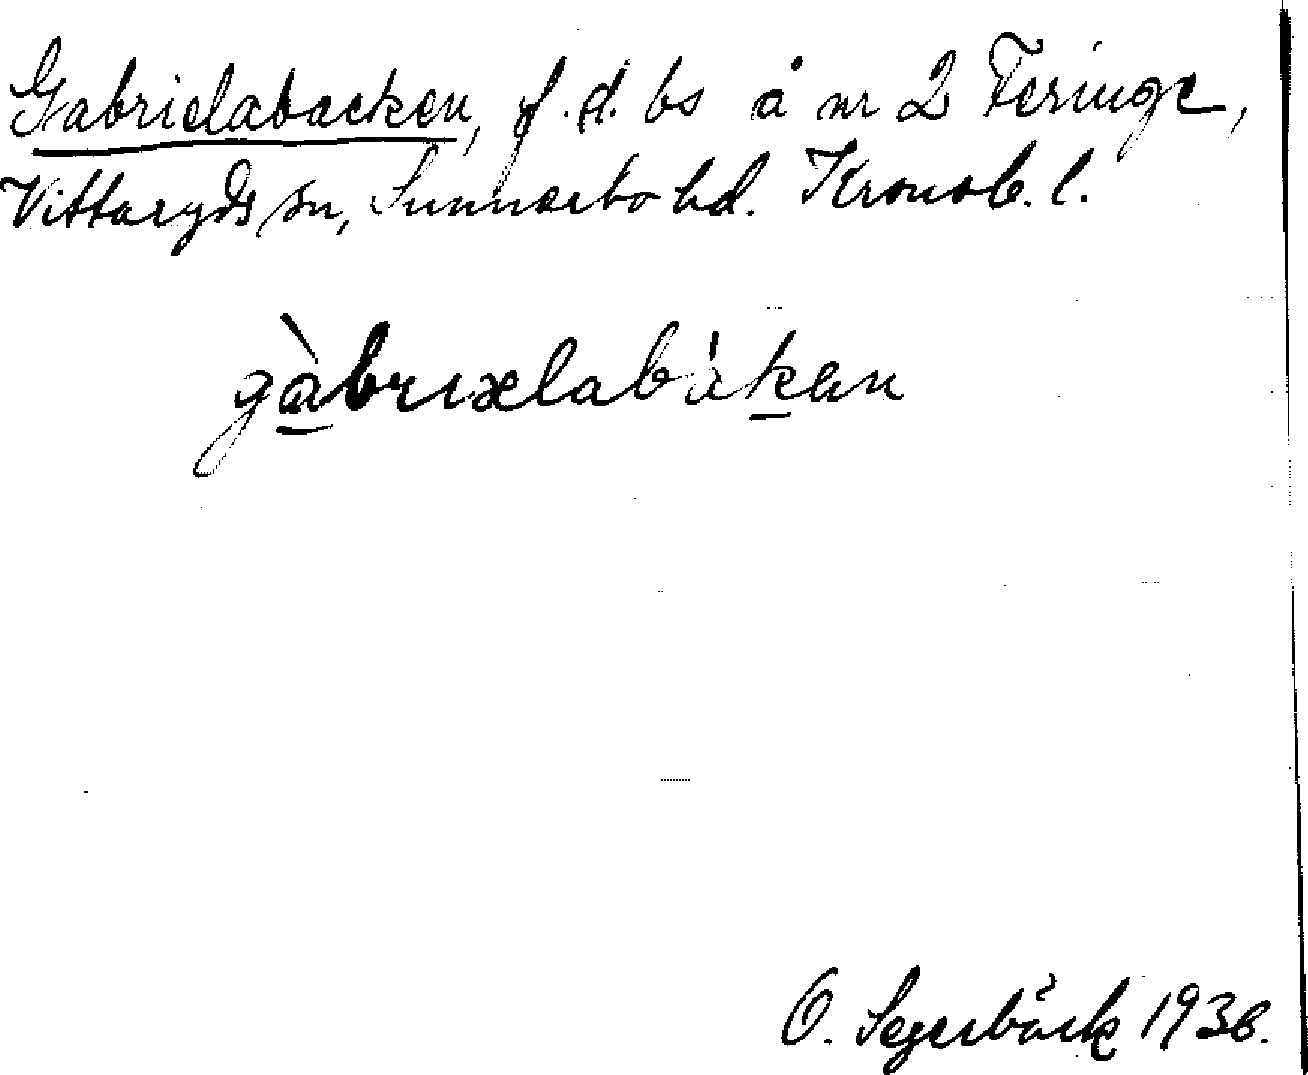 Gabrielabacken, f.d. bs å nr 2 Feringe,
Vittaryds sn, Sunnerbo hd. Kronob. l.
gàbrıælabákan
O. Segerbäck 1936.